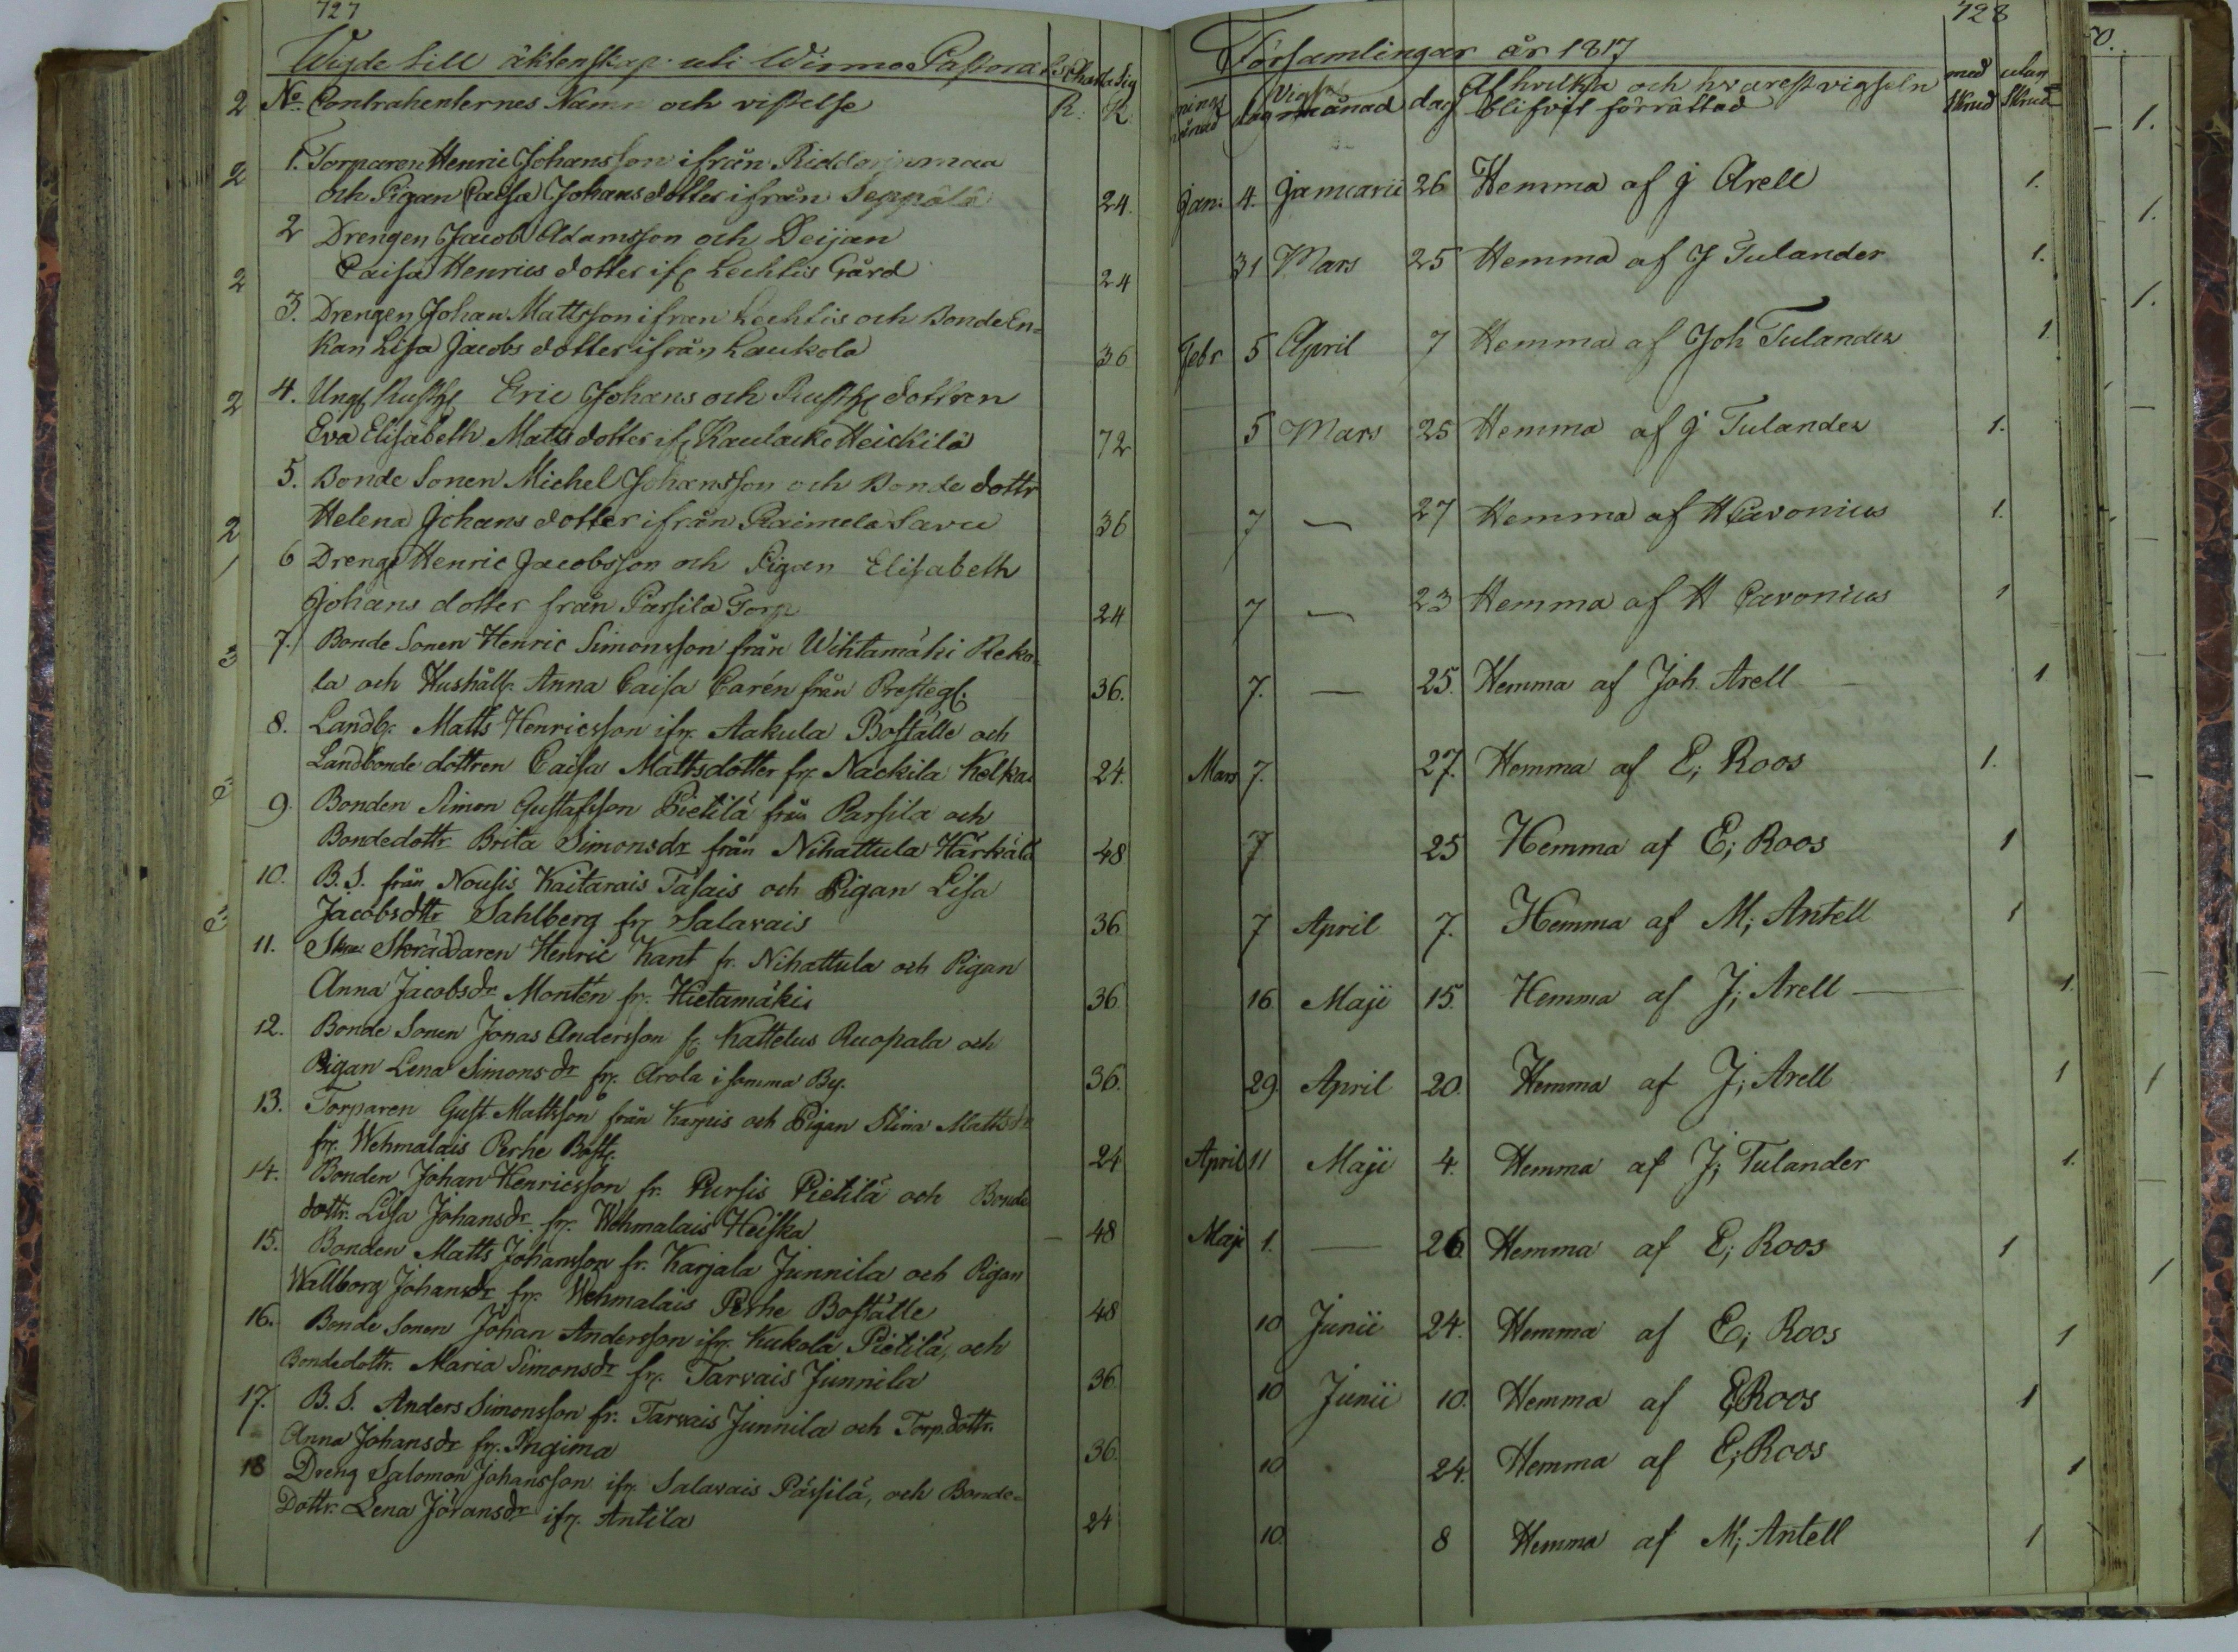 727
Wigde till äktenskap uti Wirmo Pastorats
No. Contrahenternes Namn och vistelse R. K.
1. Torparen Henric Johansson ifrån
och Pigan Caisa Johans dotter ifrån Seppälä 24.
2 Drengen Jacob Adamsson och Deijan
Caisa Henrics dotter ifr Lechtis Gård 24
3. Drengen Johan Mattsson ifrån Lechtis och Bonde En=
kan Lisa Jacobs dotter ifrån Laukola 36
4. Ungr Rusth Eric Johans och Rusth dottren
Eva Elisabeth Matts dotter ifr Kaulacko Heickilä 72
5. Bonde Sonen Michel Johansson och Bonde dottr
Helena Johans dotter ifrån Raimela Savu 36
6 Dreng Henric Jacobsson och Pigan Elisabeth
Johans dotter från Parsila Torp 24
7. Bonde Sonen Henric Simonsson från Wihtamäki Reko=
la och Hushåll. Anna Caisa Carén från Prestegl. 36.
8. Landb. Matts Henricsson ifr. Aakula Boställe och
Landbonde dottren Caisa Mattsdotter fr. Nackila Kolkas 24.
9. Bonden Simon Gustafsson Pietilä från Parsila och
Bondedottr Brita Simonsdr från Nihattula Härkälä 48
10. B. S. från Nousis Kaitarais Täsais och Pigan Lisa
Jacobsdttr Sahlberg fr Salavais 36
11. Skräddaren Henric Kant fr. Nihattula och Pigan
Anna Jacobsdr Montén fr. Hietamäkis 36
12. Bonde Sonen Jonas Andersson fr Kattelus Ruopala och
Pigan Lena Simonsdr fr. Arola i samma By. 36.
13. Torparen Gust. Mattsson från Karjis och Pigan Stina Mattsdr
fr. Wehmalais Perhe Bost. 24
14. Bonden Johan Henricsson fr. Pursis Pietilä och Bonde
dottr. Lisa Johansdr fr. Wehmalais Heiska 48
15. Bonden Matts Johansson fr. Karjala Junnila och Pigan
Wallborg Johansdr fr. Wehmalais Perhe Boställe 48
16. Bonde Sonen Johan Andersson ifr. Kukola Pietilä, och
Bondedottr. Maria Simonsdr fr. Tarvais Junnila 36
17. B. S. Anders Simonsson fr. Tarvais Junnila och Torp.dottr.
Anna Johansdr fr. Ingima 36
18 Dreng Salomon Johansson ifr. Salavais Pässilä, och Bonde=
Dottr. Lena Jöransdr ifr. Antila 24
728
Församlingar år 1817
dag månad dag Af hvilka och hvarest vigseln med utan
blifvit förrättad Skrud Skrud
Jan: 4. Januarii 26 Hemma af J Arell 1.
31 Mars 25 Hemma af J Tulander 1.
Febr 5 April 7 Hemma af Joh Tulander 1
5 Mars 25 Hemma af J Tulander 1.
7 — 27 Hemma af H Cavonius 1.
7 — 23 Hemma af H Cavonius 1
7. — 25. Hemma af Joh. Arell 1
Mars 7. 27. Hemma af E; Roos 1.
7 25 Hemma af E; Roos 1
7 April 7. Hemma af M; Antell 1
16 Maji 15. Hemma af J; Arell 1.
29 April 20. Hemma af J; Arell 1
April 11 Maji 4. Hemma af J; Tulander 1.
Maji 1. — 26 Hemma af E; Roos 1
10 Junii 24. Hemma af E; Roos 1
10 Junii 10. Hemma af E; Roos 1
10 24. Hemma af E; Roos 1
10. 8 Hemma af M; Antell 1